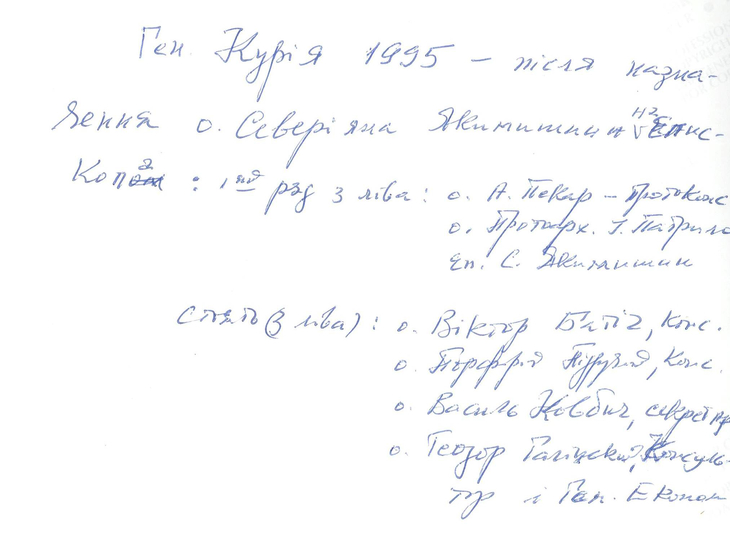 Ген. Курія 1995 – після назна-
чення о. Северіяна Якимишин на Епис-
копа : 1ий ряд з ліва : о. А. Пекар – Протоконс
о. Протоарх. І. Патрило
еп. С. Якимишин
стоять (з ліва) : о. Віктор Батіг, Конс.
о. Порфирій Підручний, Конс.
о. Василь Ковбич, секретар
о. Теодор Галіцкий, Консуль-
тор і Ген. Економ